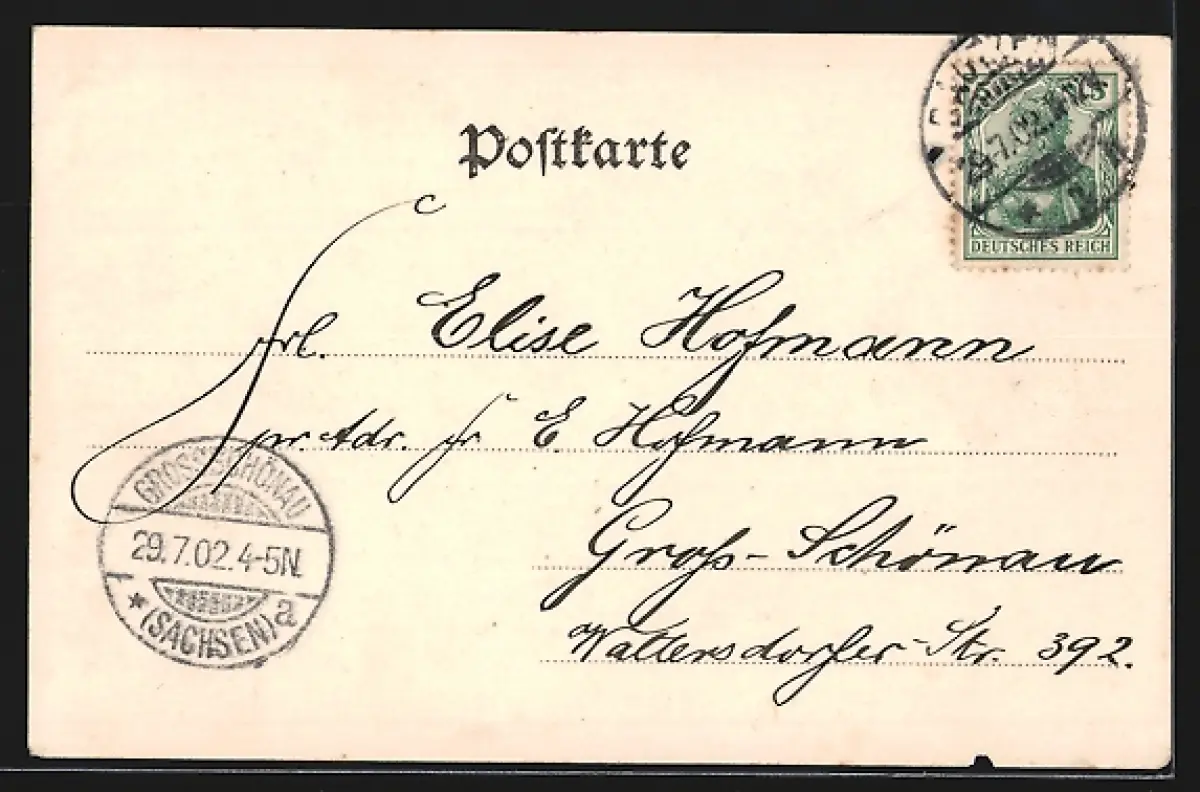 Postkarte
BAUTZEN
29.7.02
5
DEUTSCHES REICH
Frl. Elise Hofmann
pr. Adr. Fr. E. Hofmann
Groß-Schönau
Waltersdorfer-Str. 392.
GROSSSCHÖNAU
29.7.02.4-5N.
* (SACHSEN) a